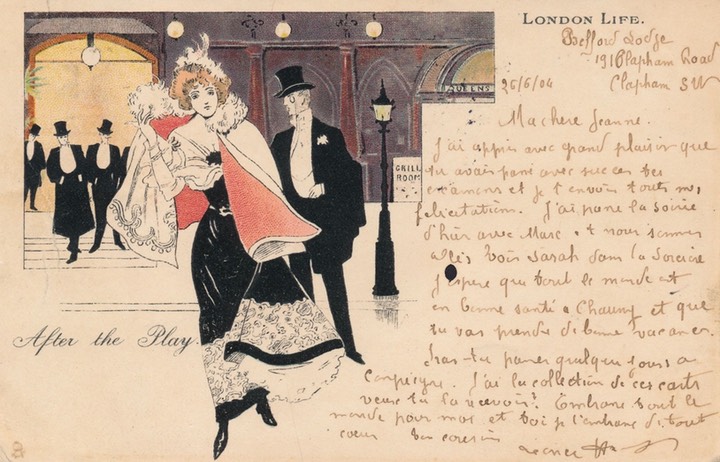 LONDON LIFE.
Bedford Lodge
191 Clapham Road
26/6/04 Clapham SW
QUEENS
GRILL
ROOM
After the Play
Ma chere Jeanne.
J'ai appris avec grand plaisir que
tu avais passé avec succes tes
examens et je t'envoie toutes mes
felicitations. J'ai passé la soirée
d'hier avec Marc et nous sommes
allés voir Sarah dans la Sorciere
J'espere que tout le monde est
en bonne santé a Chauny et que
tu vas prendre de bonnes vacances.
Iras-tu passer quelques jours a
Compiegne. J'ai la collection de ces cartes
veux tu la recevoir? Embrasse tout le
monde pour moi et toi je t'embrasse de tout
coeur ton cousin